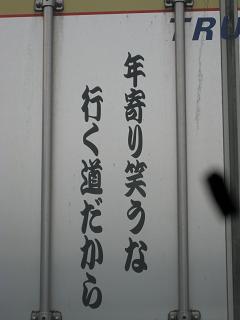 TRU
年寄り笑うな
行く道だから